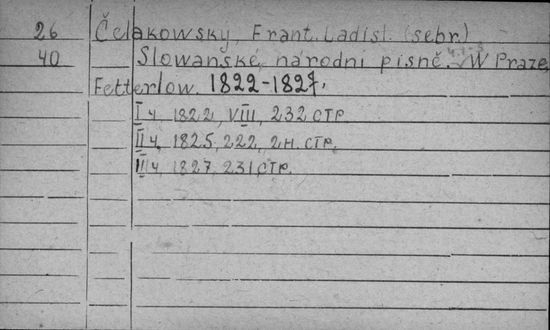 26 Čelakowský, Frant. Ladisl. (sebr.)
40 Slowanské národni pisně. Č. 1-3 W Praze
Fetterlow. 1822-1827.
I ч, 1822, VIII, 232 стр.
II ч, 1825, 222, 2 н. стр.
III ч, 1827, 231 стр.